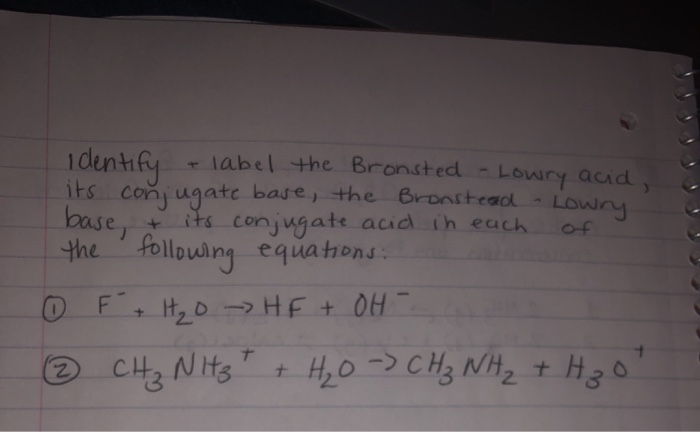 Identify + label the Bronsted - Lowry acid,
its conjugate base, the Bronstead - Lowry
base, + its conjugate acid in each of
the following equations:
① F⁻ + H₂O → HF + OH⁻
② CH₃NH₃⁺ + H₂O → CH₃NH₂ + H₃O⁺